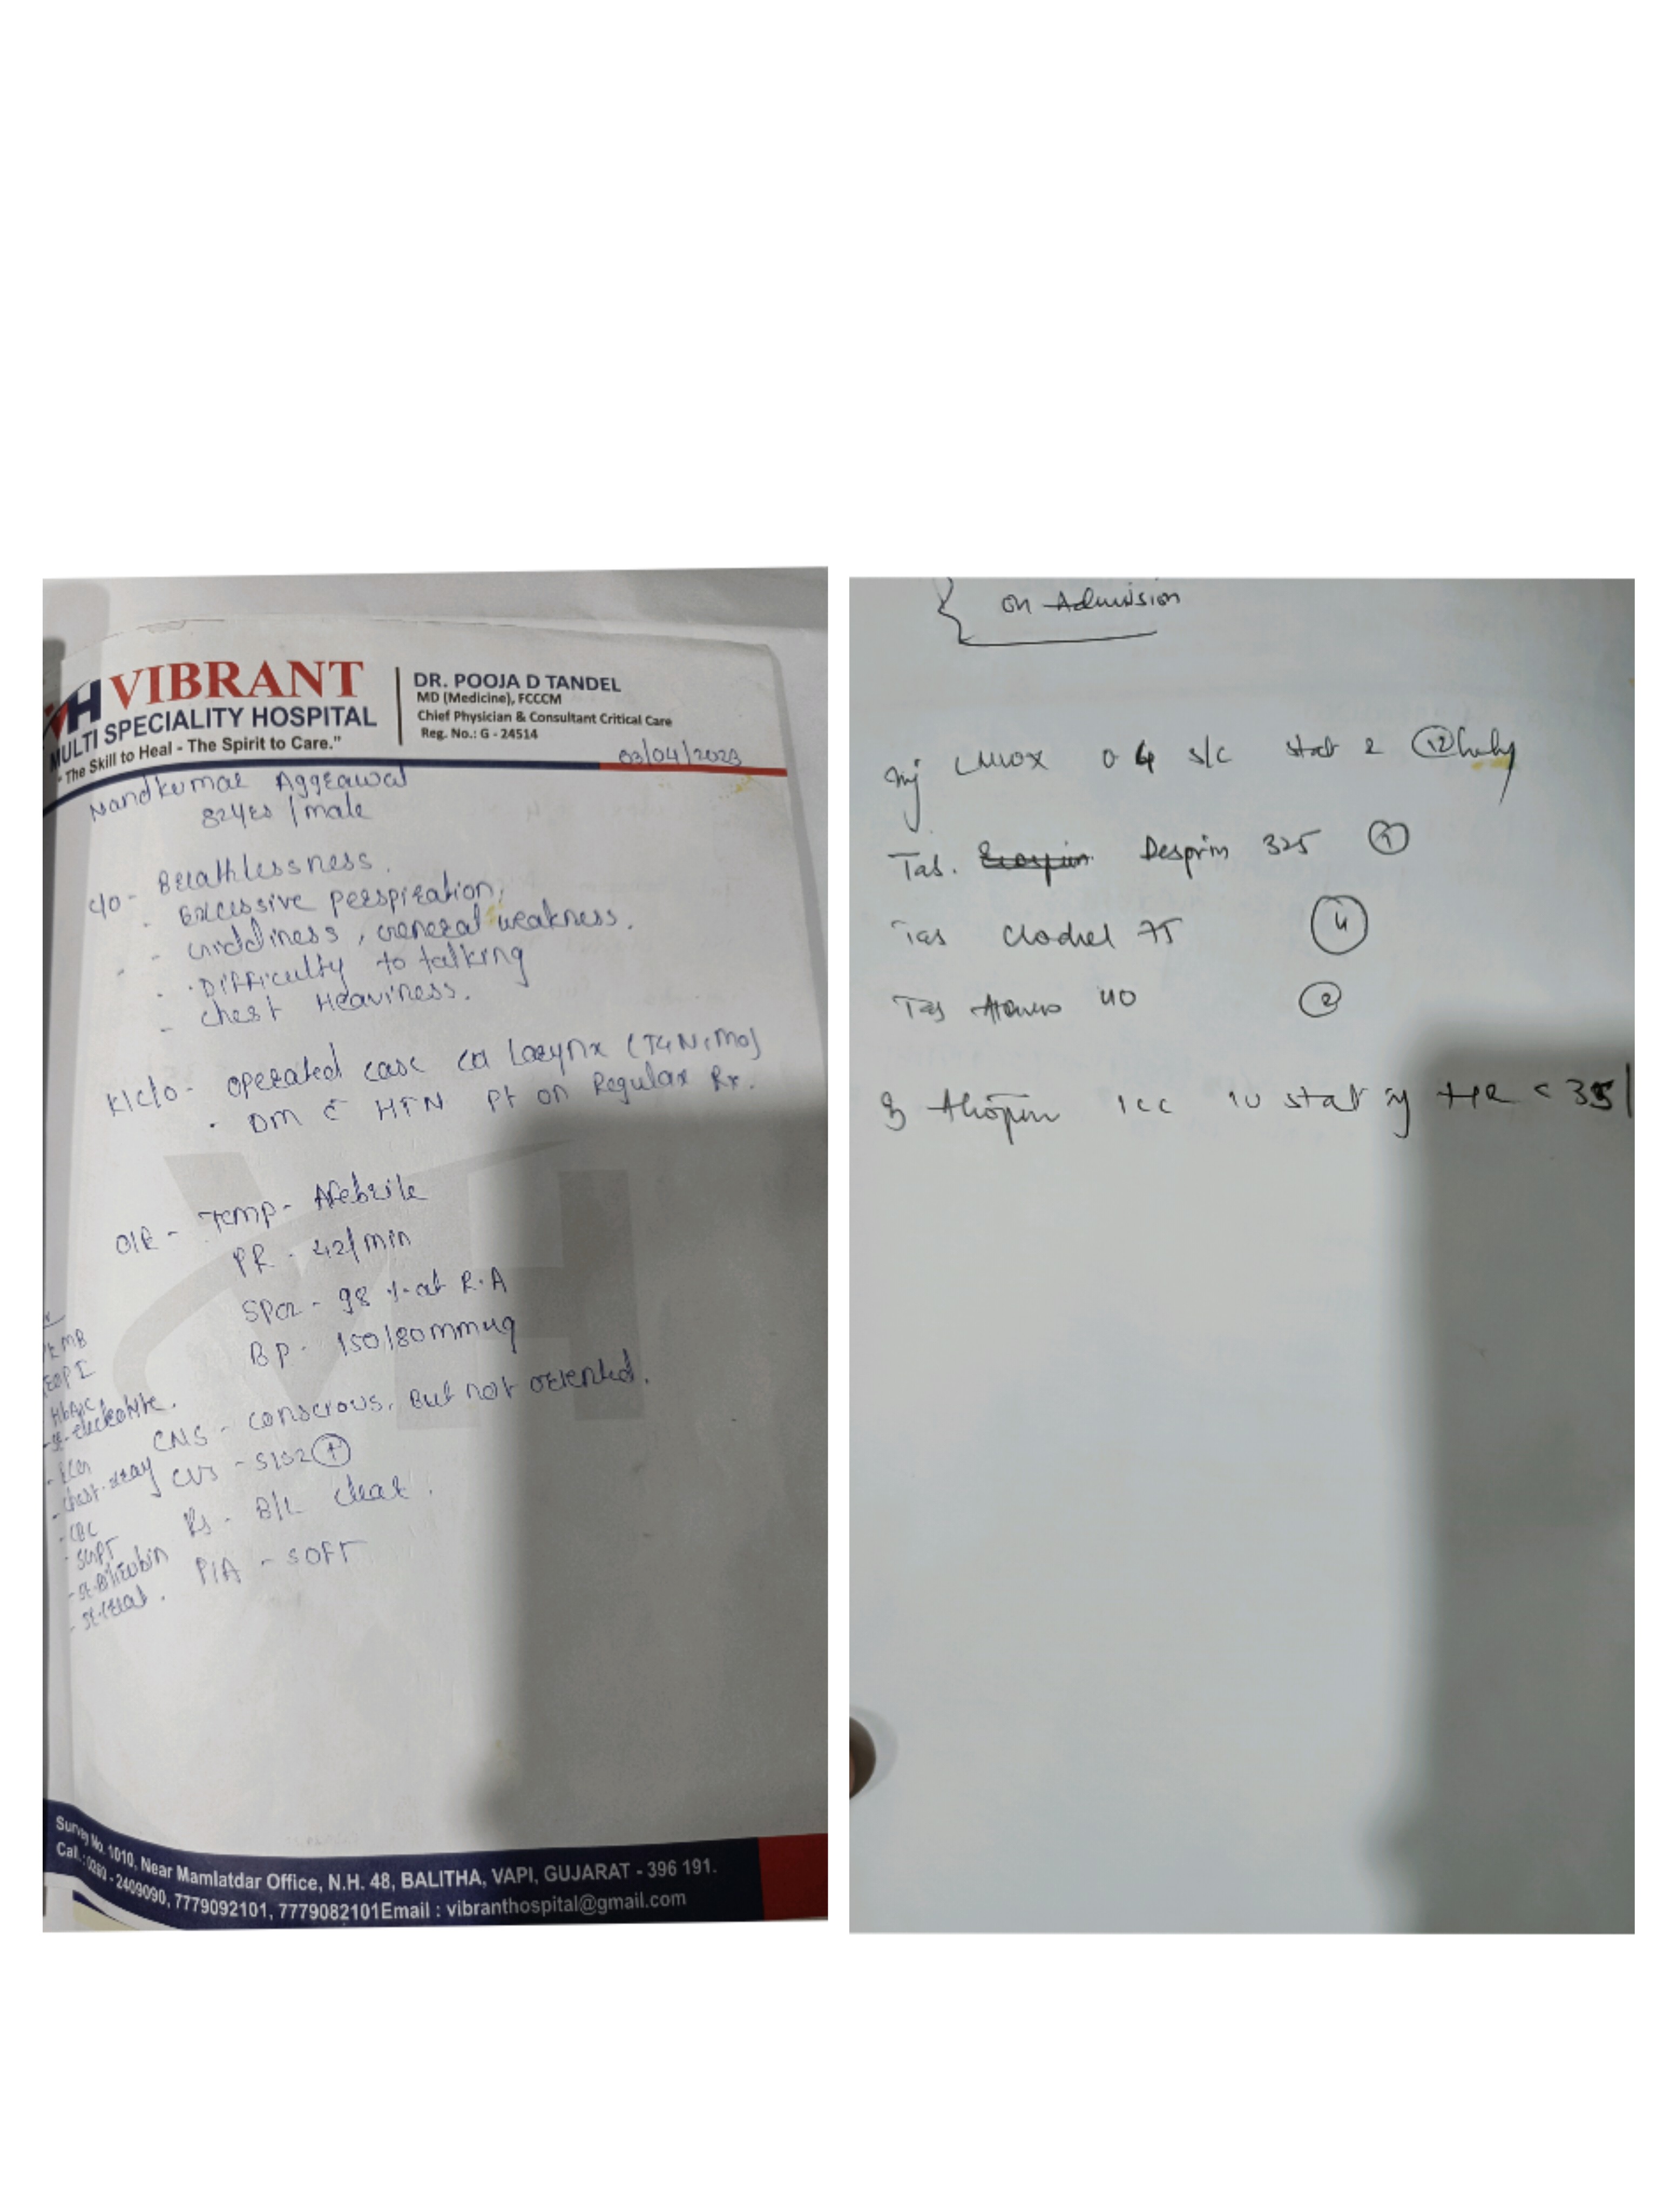 VIBRANT
MULTI SPECIALITY HOSPITAL
"The Skill to Heal - The Spirit to Care."
DR. POOJA D TANDEL
MD (Medicine), FCCCM
Chief Physician & Consultant Critical Care
Reg. No.: G - 24514
03/04/2023
Nandkumar Aggrawal
82yrs / male
c/o - Breathlessness.
- Excessive perspiration,
- Giddiness, General weakness.
- Difficulty to talking
- chest Heaviness.
K/c/o - operated case ca Larynx (T4N1M0)
. DM c̄ HTN Pt on Regular Rx.
O/E - Temp - Afebrile
PR - 42/min
SPO2 - 98 % at R.A
BP - 150/80mmHg
CNS - conscious, But not oriented.
CVS - S1S2 (+)
Rs - B/L clear.
P/A - SOFT
MB
HbA1C
- Sr. electrolyte.
- ECG
- chest-xray
- CBC
- SGPT
- Sr. Bilirubin
- Sr. creat.
Survey No. 1010, Near Mamlatdar Office, N.H. 48, BALITHA, VAPI, GUJARAT - 396 191.
Call.: 0260 - 2409090, 7779092101, 7779082101 Email : vibranthospital@gmail.com
on Admission
Inj LMWX 0 4 s/c stat & (12) hrly
Tab. Ecosprin Desprin 325 (1)
Tab Clodrel 75 (4)
Tab Atorva 40 (2)
Atropin 1cc IV stat if HR < 35/